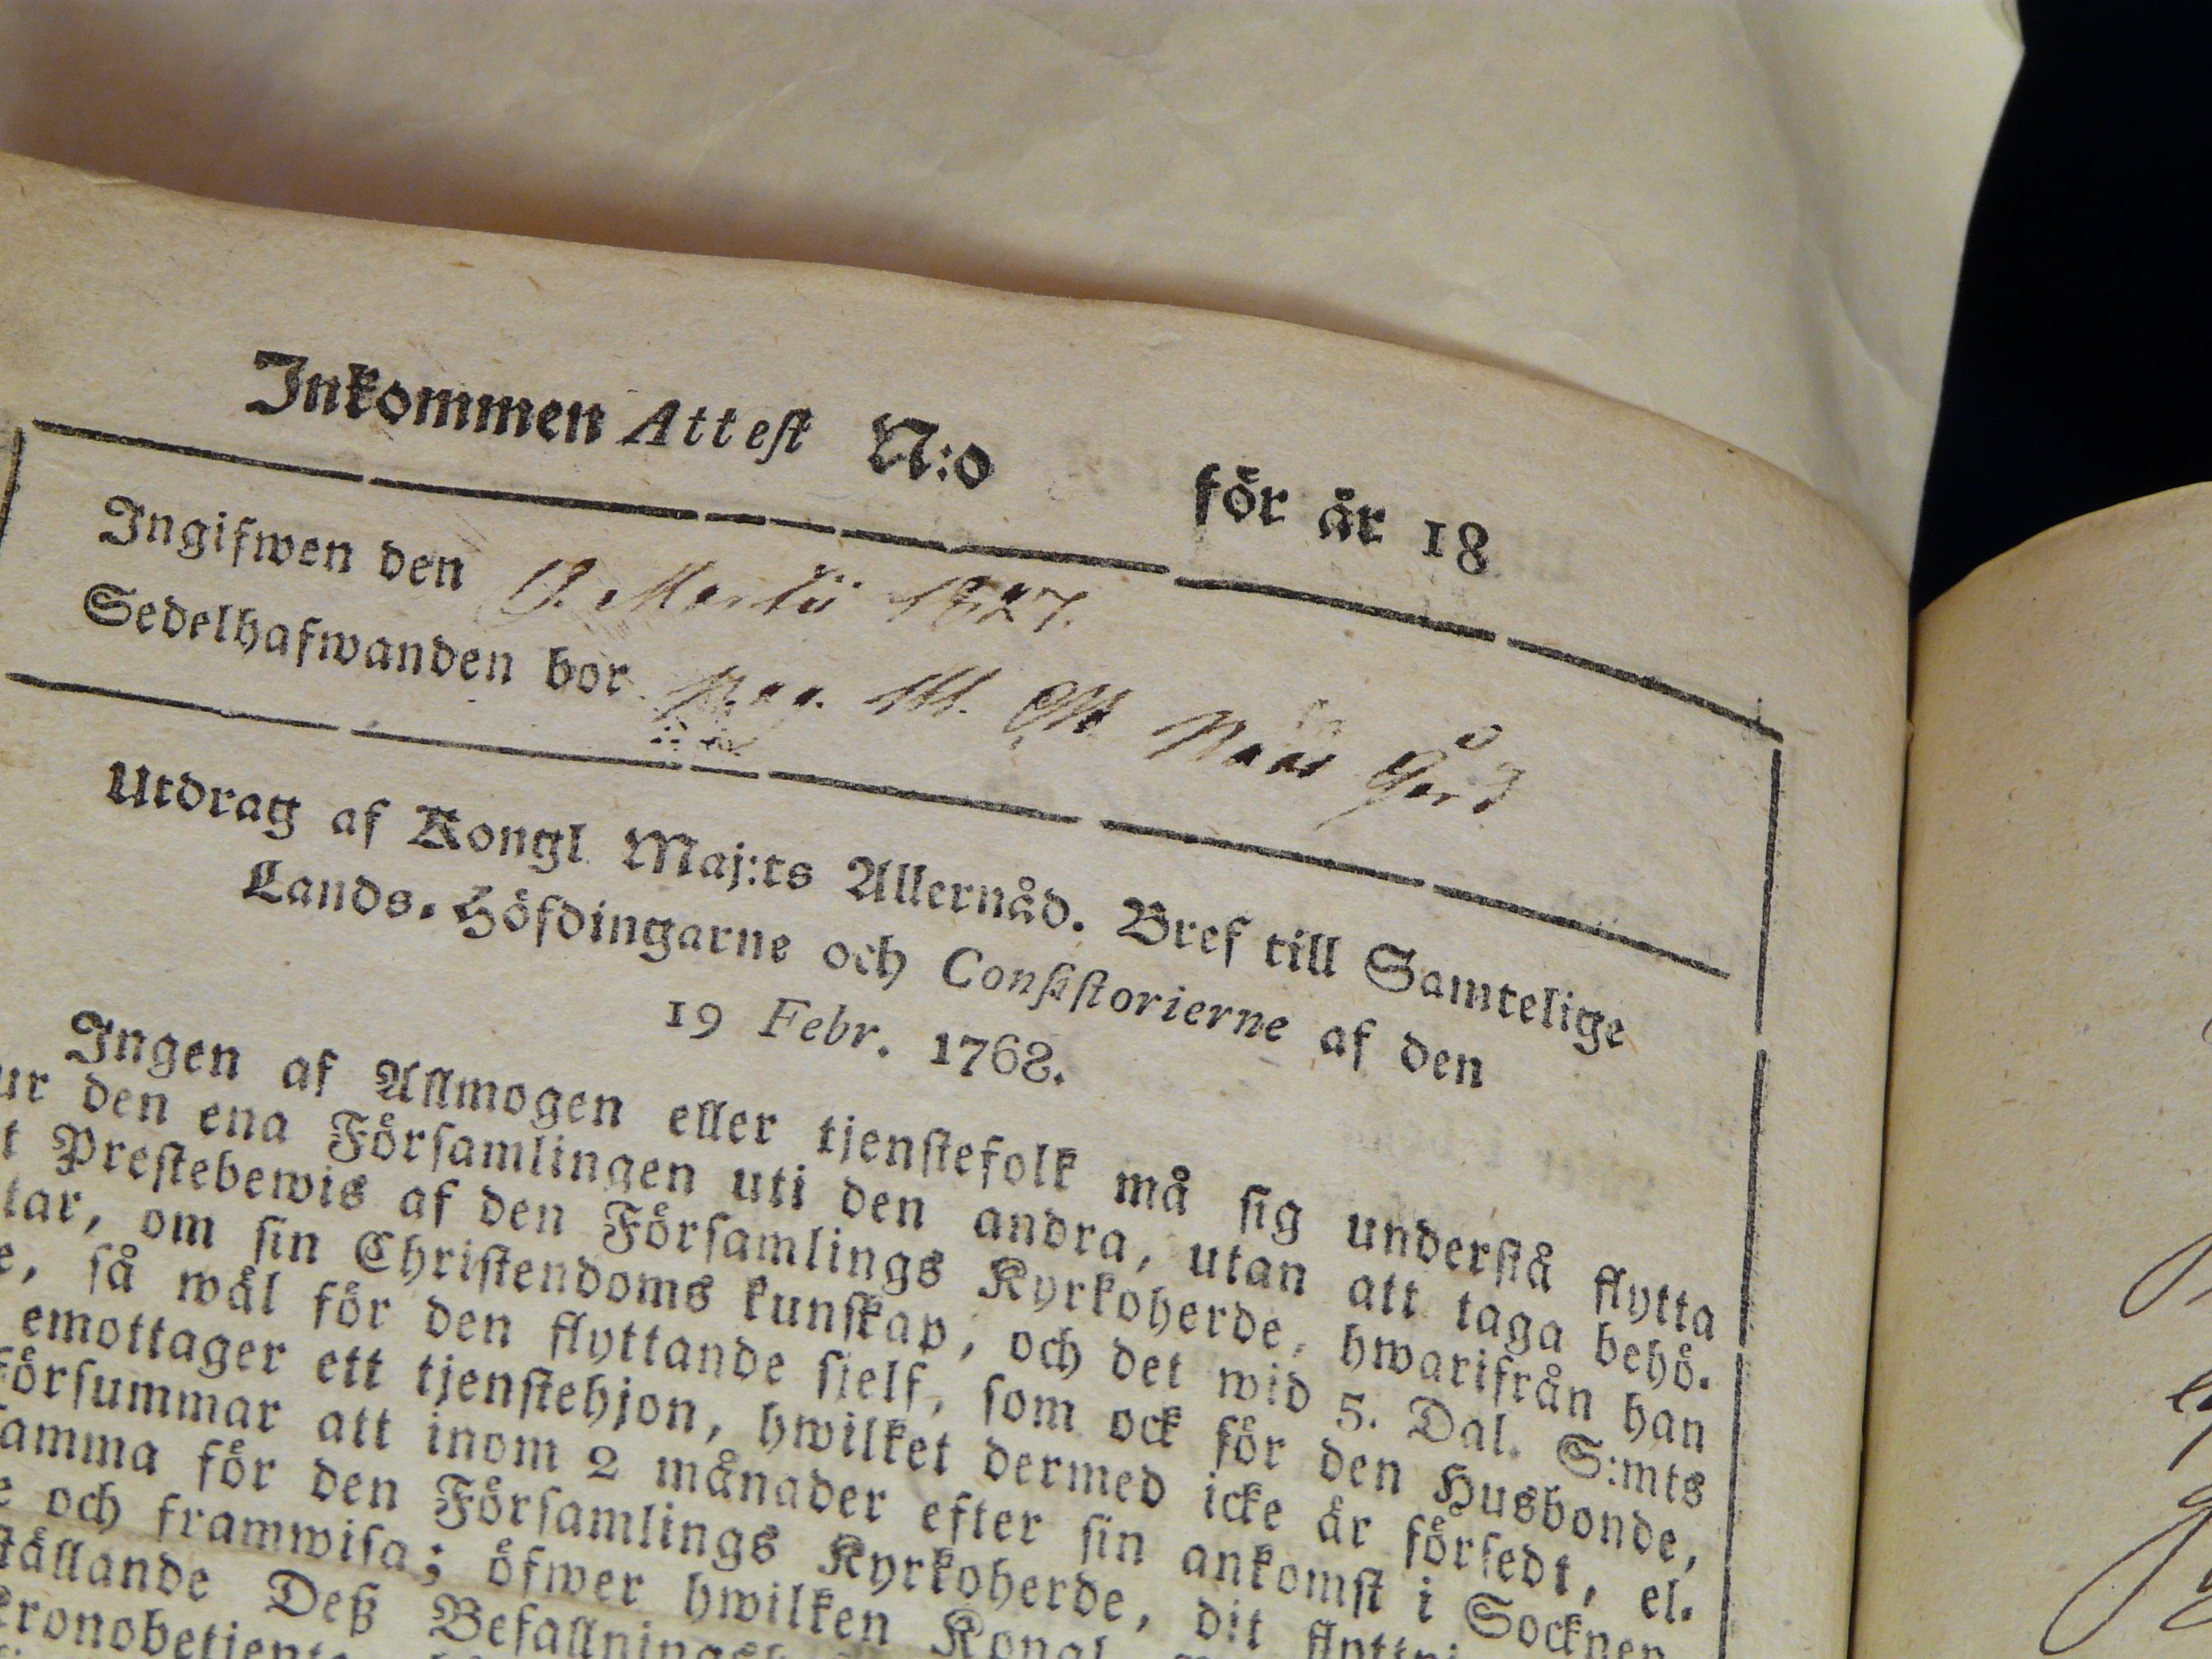 Inkommen Attest N:o för år 18
Ingifwen den Martii 1827.
Sedelhafwanden bor
Utdrag af Kongl Maj:ts Allernåd. Bref till Samtelige
Lands-Höfdingarne och Consistorierne af den
19 Febr. 1768.
Ingen af Allmogen eller tjenstefolk må sig understå flytta
ur den ena Församlingen uti den andra, utan att taga behö-
t Prestebewis af den Församlings Kyrkoherde, hwarifrån han
tar, om sin Christendoms kunskap, och det wid 5. Dal. S:mts
e, så wäl för den flyttande sjelf, som ock för den Husbonde,
emottager ett tjenstehjon, hwilket dermed icke är försedt, el-
försummar att inom 2 månader efter sin ankomst i Socknen
amma för den Församlings Kyrkoherde, dit
e och framwisa; öfwer hwilken Kongl.
ställande Deß